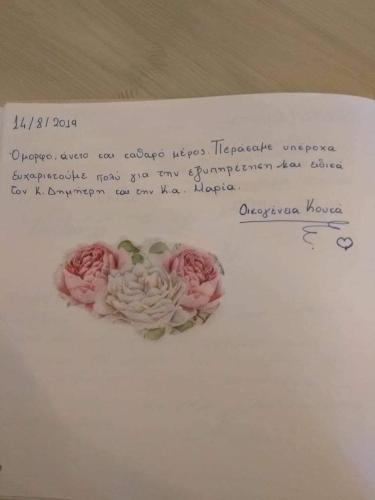 14/8/2019
Όμορφο, άνετο και καθαρό μέρος. Περάσαμε υπέροχα
Ευχαριστούμε πολύ για την εξυπηρέτηση και ειδικά
τον κ. Δημήτρη και την κ.α. Μαρία.
Οικογένεια Κουκά